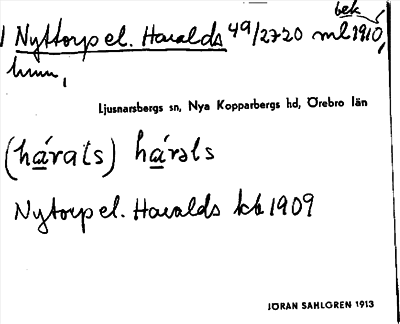 bek
Nyttorp el. Haralds 49/2720 ml 1910,
hmn,
Ljusnarsbergs sn, Nya Kopparbergs hd, Örebro län
(hárals) hárəls
Nytorp el. Haralds kb 1909
JÖRAN SAHLGREN 1913